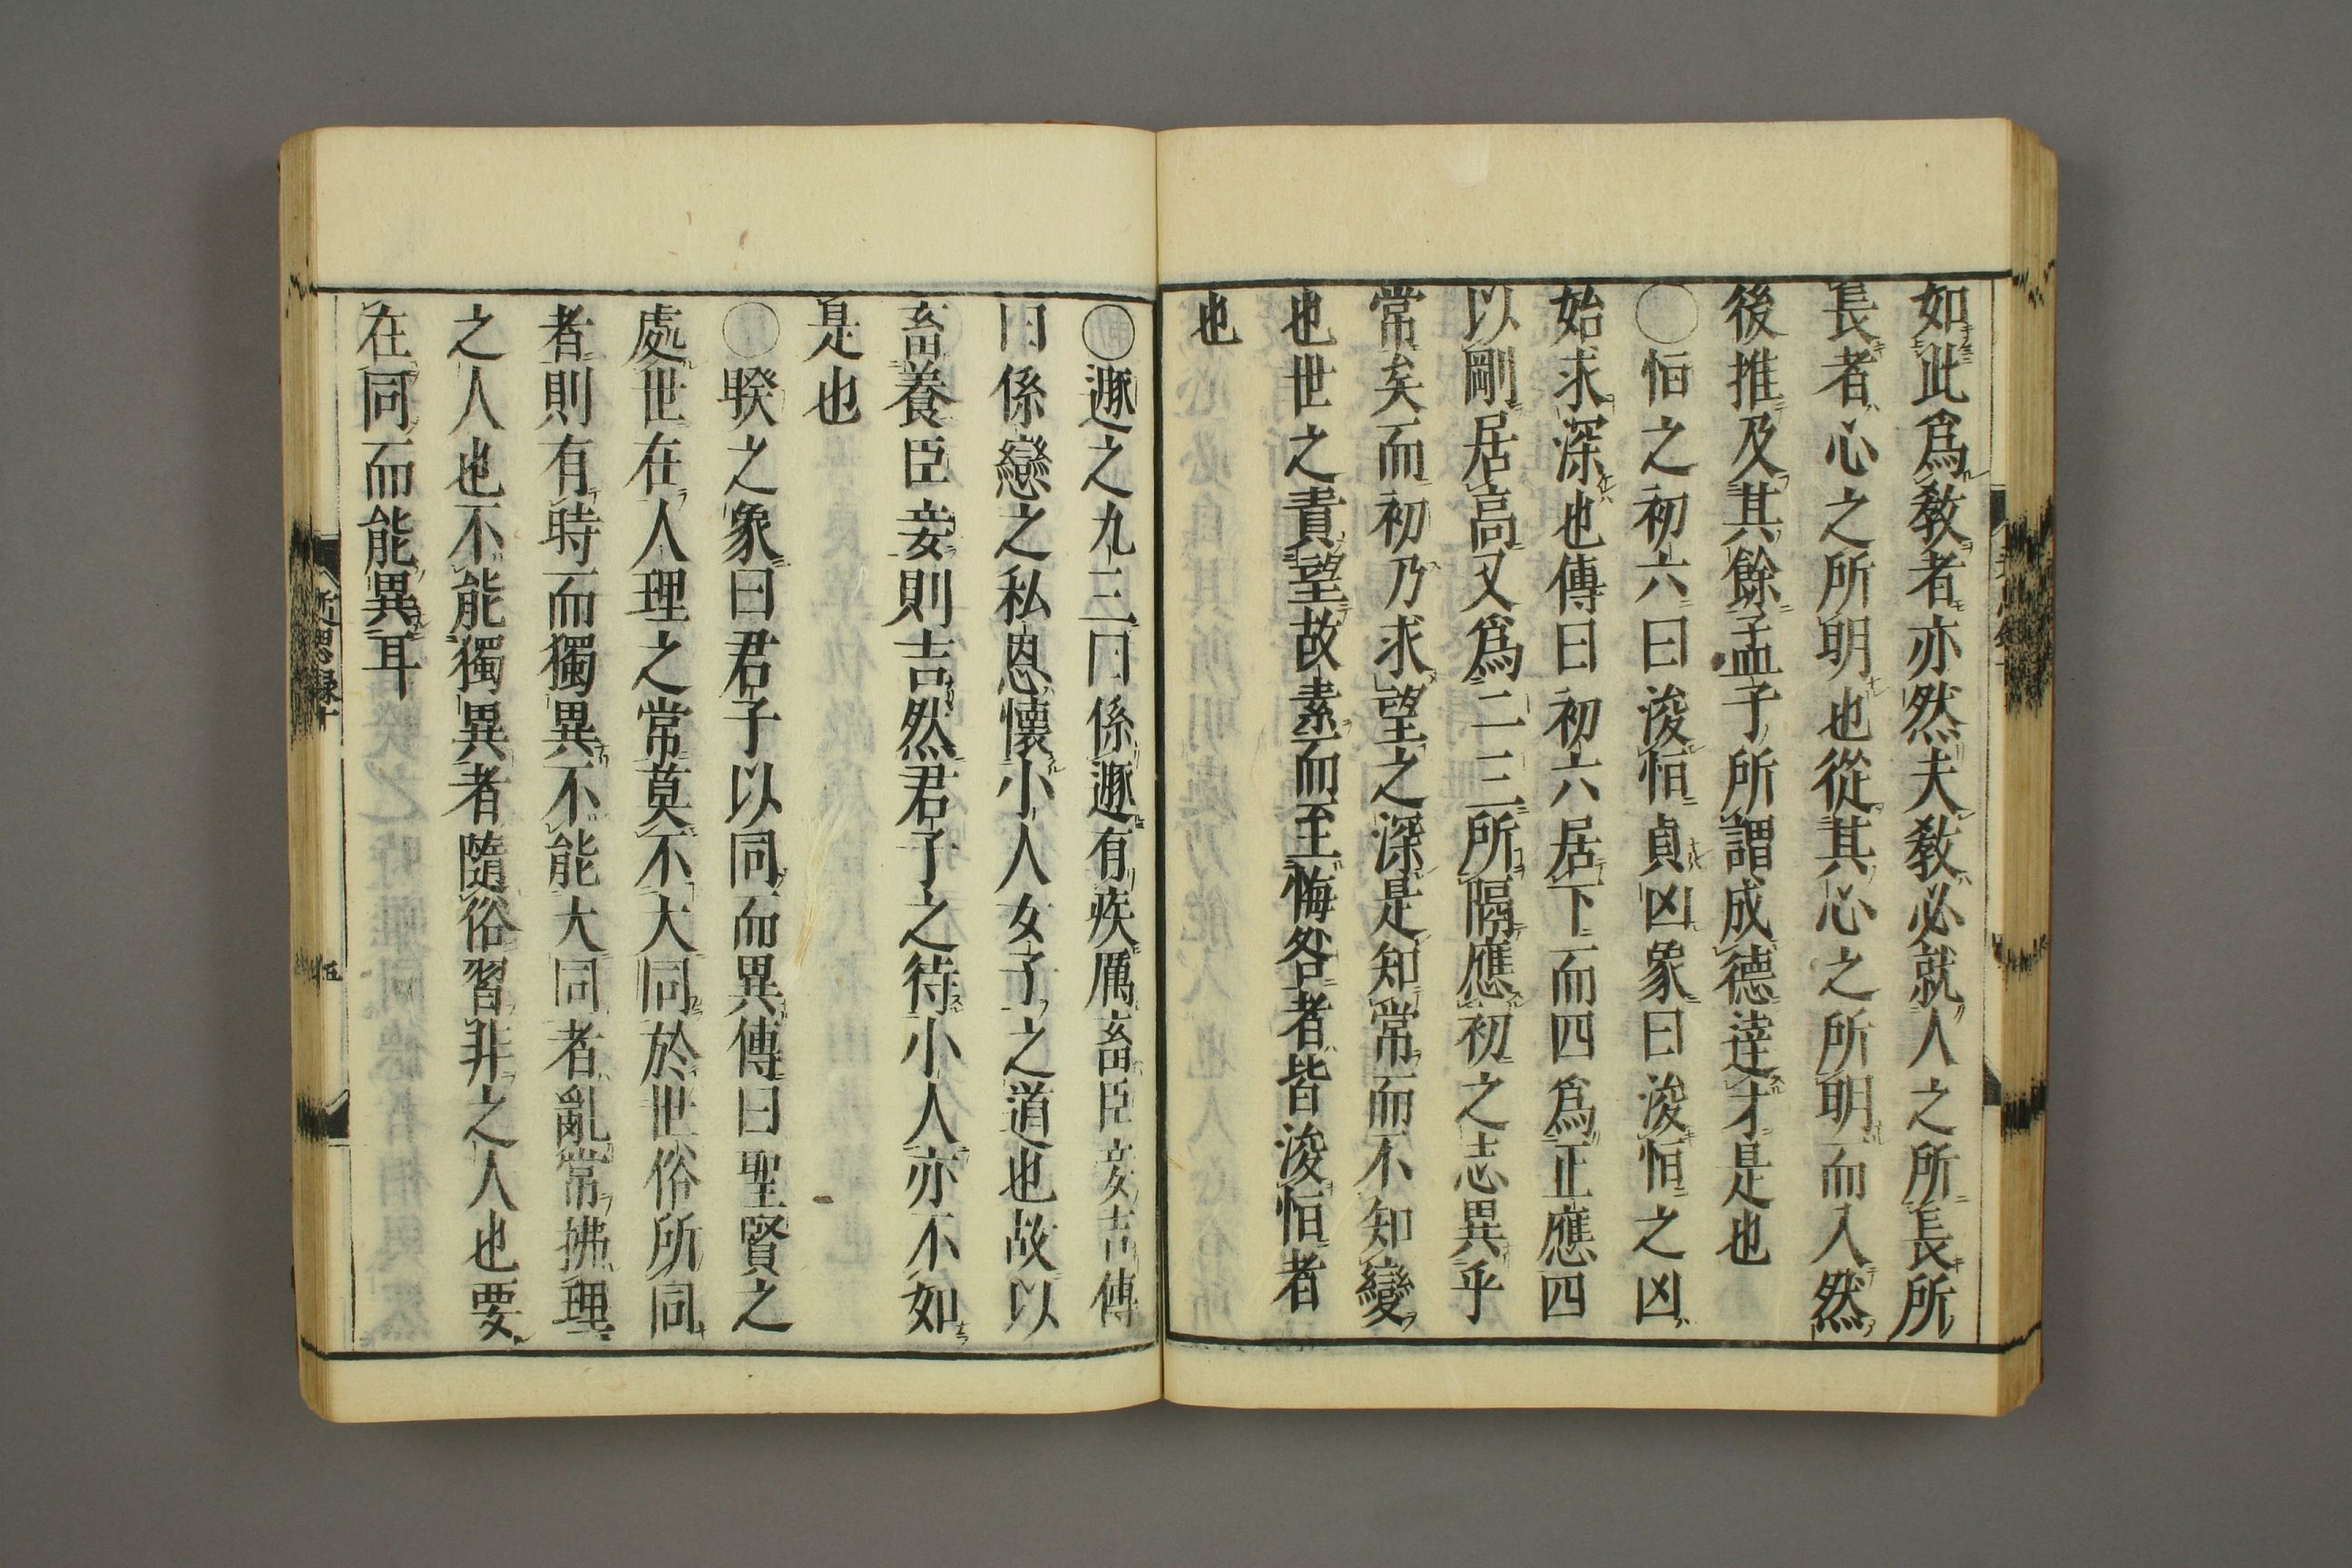 如此爲敎者亦然夫敎必就人之所長所
長者心之所明也從其心之所明而入然
後推及其餘孟子所謂成德達才是也
○恒之初六曰浚恒貞凶象曰浚恒之凶
始求深也傳曰初六居下而四爲正應四
以剛居高又爲二三所隔應初之志異乎
常矣而初乃求望之深是知常而不知變
也世之責望故素而至悔咎者皆浚恒者
也
○遯之九三曰係遯有疾厲畜臣妾吉傳
曰係戀之私恩懷小人女子之道也故以
畜養臣妾則吉然君子之待小人亦不如
是也
○睽之象曰君子以同而異傳曰聖賢之
處世在人理之常莫不大同於世俗所同
者則有時而獨異不能大同者亂常拂理
之人也不能獨異者隨俗習非之人也要
在同而能異耳
近思録十
五